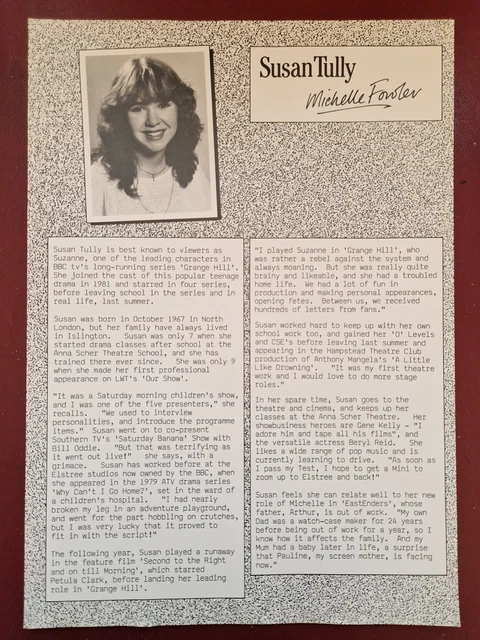 Susan Tully
Michelle Fowler
Susan Tully is best known to viewers as
Suzanne, one of the leading characters in
BBC tv's long-running series 'Grange Hill'.
She joined the cast of this popular teenage
drama in 1981 and starred in four series,
before leaving school in the series and in
real life, last summer.
Susan was born in October 1967 in North
London, but her family have always lived
in Islington.  Susan was only 7 when she
started drama classes after school at the
Anna Scher Theatre School, and she has
trained there ever since.  She was only 9
when she made her first professional
appearance on LWT's 'Our Show'.
"It was a Saturday morning children's show,
and I was one of the five presenters," she
recalls.  "We used to interview
personalities, and introduce the programme
items."  Susan went on to co-present
Southern TV's 'Saturday Banana' Show with
Bill Oddie.  "But that was terrifying as
it went out live!"  she says, with a
grimace.  Susan has worked before at the
Elstree studios now owned by the BBC, when
she appeared in the 1979 ATV drama series
'Why Can't I Go Home?', set in the ward of
a children's hospital.  "I had nearly
broken my leg in an adventure playground,
and went for the part hobbling on crutches,
but I was very lucky that it proved to
fit in with the script!"
The following year, Susan played a runaway
in the feature film 'Second to the Right
and on till Morning', which starred
Petula Clark, before landing her leading
role in 'Grange Hill'.
"I played Suzanne in 'Grange Hill', who
was rather a rebel against the system and
always moaning.  But she was really quite
brainy and likeable, and she had a troubled
home life.  We had a lot of fun in
production and making personal appearances,
opening fetes.  Between us, we received
hundreds of letters from fans."
Susan worked hard to keep up with her own
school work too, and gained her 'O' Levels
and CSE's before leaving last summer and
appearing in the Hampstead Theatre Club
production of Anthony Mangela's 'A Little
Like Drowning'.  "It was my first theatre
work and I would love to do more stage
roles."
In her spare time, Susan goes to the
theatre and cinema, and keeps up her
classes at the Anna Scher Theatre.  Her
showbusiness heroes are Gene Kelly - "I
adore him and tape all his films", and
the versatile actress Beryl Reid.  She
likes a wide range of pop music and is
currently learning to drive.  "As soon as
I pass my Test, I hope to get a Mini to
zoom up to Elstree and back!"
Susan feels she can relate well to her new
role of Michelle in 'EastEnders', whose
father, Arthur, is out of work.  "My own
Dad was a watch-case maker for 24 years
before being out of work for a year, so I
know how it affects the family.  And my
Mum had a baby later in life, a surprise
that Pauline, my screen mother, is facing
now."